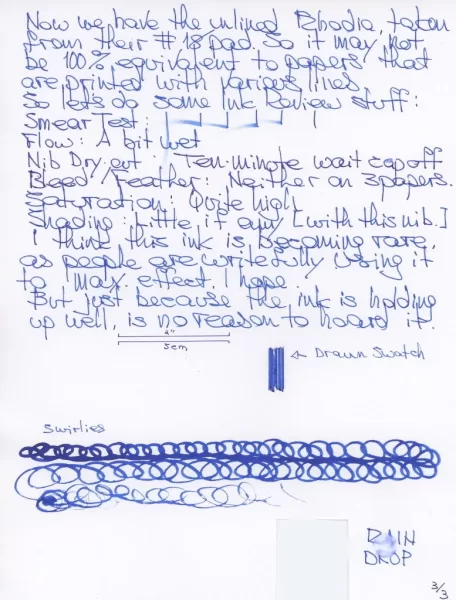 Now we have the unlined Rhodia, taken
from their # 18 pad. So it may not
be 100% equivalent to papers that
are printed with various lines.
So lets do some Ink Review stuff:
Smear Test:
Flow: A bit wet
Nib Dry out: Ten minute wait cap off
Bleed/Feather: Neither on 3 papers.
Saturation: Quite high
Shading: Little if any [with this nib.]
I think this ink is becoming rare,
as people are writefully using it
to max. effect, I hope.
But just because the ink is holding
up well, is no reason to hoard it.
2"
5cm
Drawn Swatch
Swirlies
RAIN
DROP
3/3